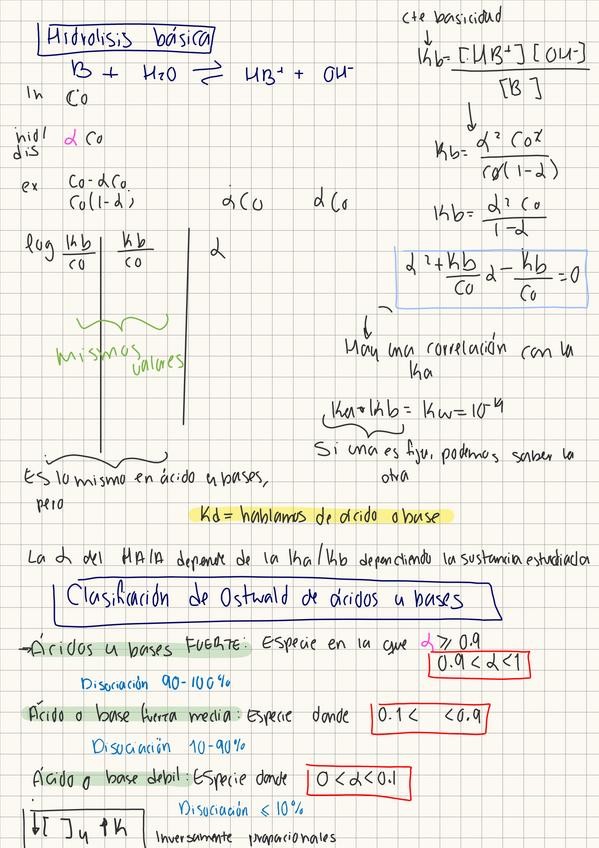 cte basicidad
↓
Hidrolisis básica
B + H₂O ⇌ HB⁺ + OH⁻
Kb = [HB⁺][OH⁻] / [B]
In Co
hid/dis αCo
ex Co-αCo
Co(1-α) αCo αCo
Kb = α² Co² / Co(1-α)
Kb = α² Co / 1-α
log Kb/Co Kb/Co α
α² + Kb/Co α - Kb/Co = 0
mismos
valores
Hay una correlación con la
Ka
Ka • Kb = Kw = 10⁻¹⁴
Si una es fija, podemos saber la
otra
Es lo mismo en ácido y bases,
pero
Kd = hablamos de acido o base
La α del HA/A depende de la Ka/Kb dependiendo la sustancia estudiada
Clasificación de Ostwald de ácidos y bases
→Ácidos y bases FUERTE: Especie en la que α ⩾ 0.9
0.9 < α < 1
Disociación 90-100%
Ácido o base fuerza media: Especie donde 0.1 < < 0.9
Disociación 10-90%
Ácido o base debil: Especie donde 0 < α < 0.1
Disociación ⩽ 10%
↓[ ] y ↑K Inversamente proporcionales